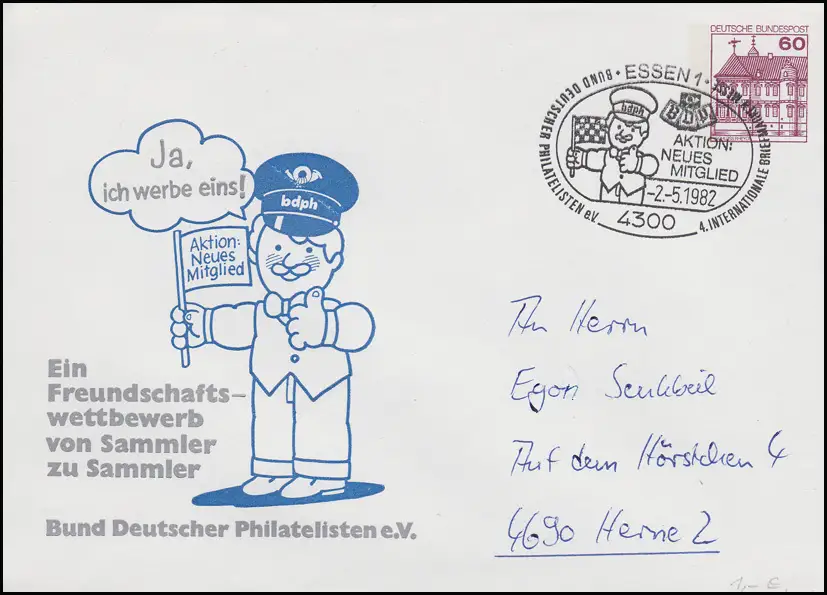 DEUTSCHE BUNDESPOST
60
BUND DEUTSCHER PHILATELISTEN e.V. · ESSEN 1 ·
4. INTERNATIONALE BRIEFMARKEN-MESSE
bdph
AKTION:
NEUES
MITGLIED
-2.-5.1982
4300
Ja,
ich werbe eins!
bdph
Aktion:
Neues
Mitglied
Ein
Freundschafts-
wettbewerb
von Sammler
zu Sammler
Bund Deutscher Philatelisten e.V.
An Herrn
Egon Senkbeil
Auf dem Hörstchen 4
4690 Herne 2
1,- €